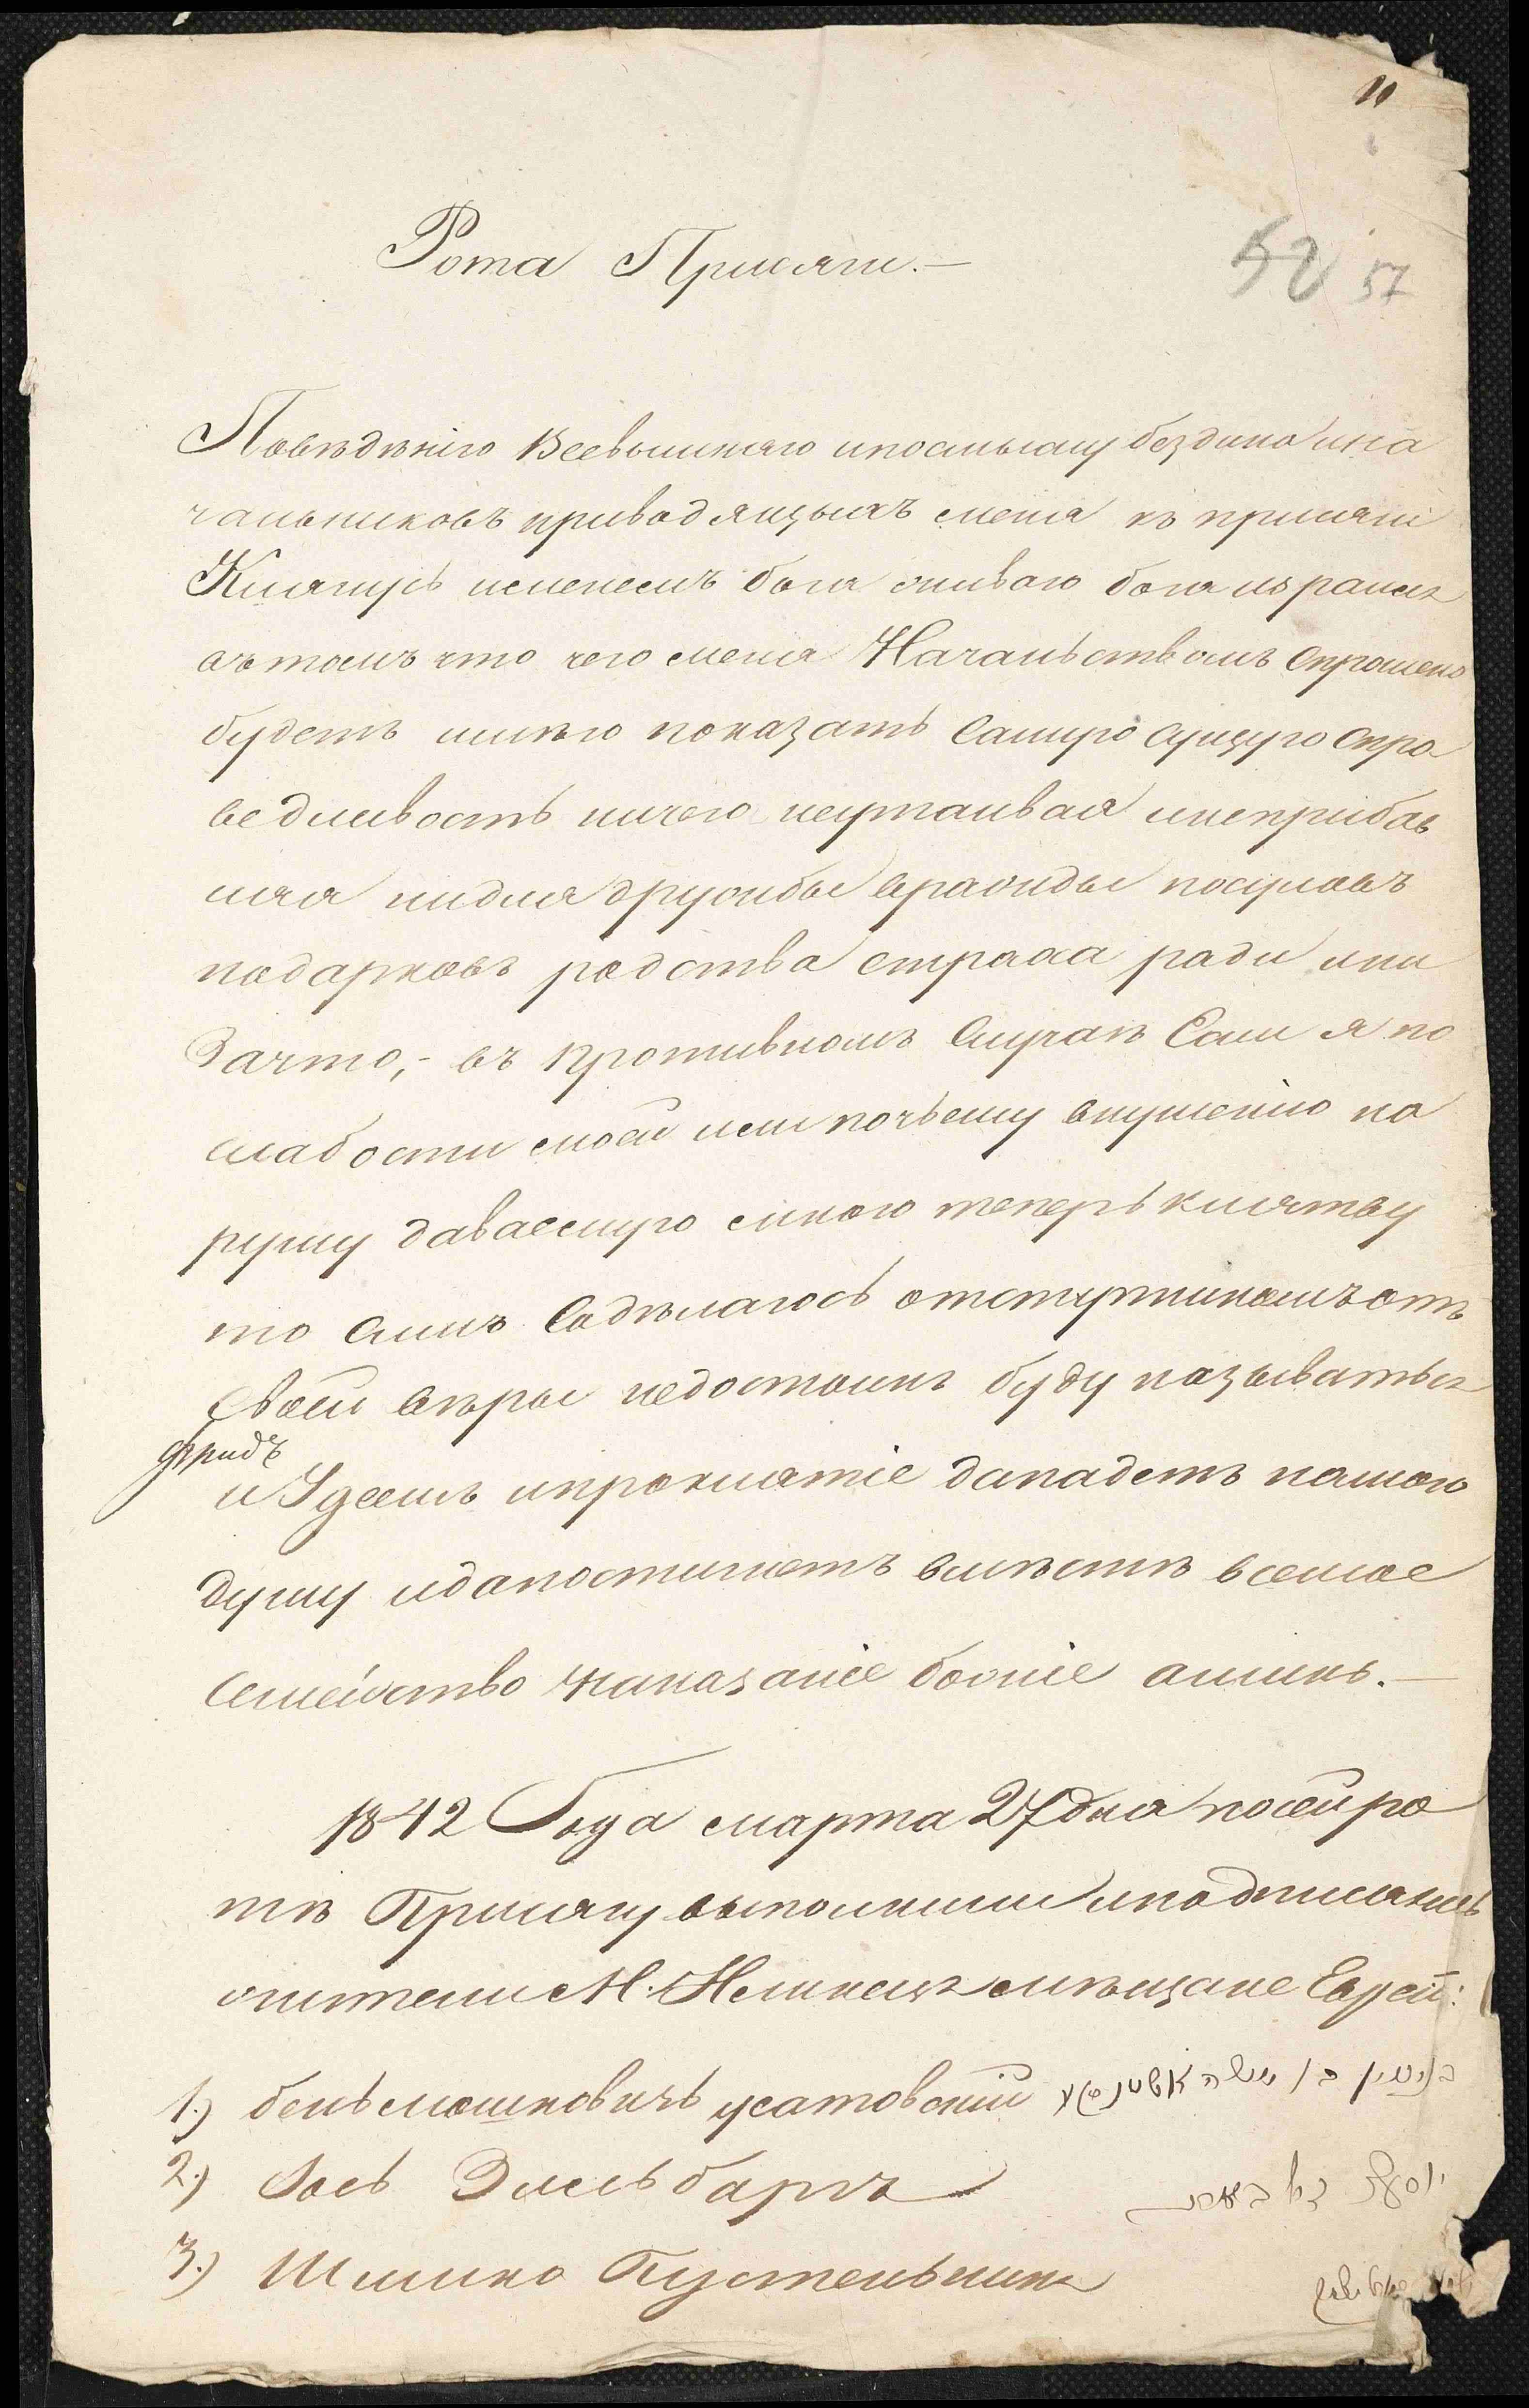 11
Рота Присяги.—
52 57
Повѣдѣнію Всевышняго ипосмыслу бездина ина
чальниковъ приводящыхъ меня къ присягѣ
Клянусь именемъ бога живаго бога израиля
вътомъ что чего меня Начальствомъ Спрошено
будетъ имѣю показать Самую Сущую Спра
ведливость ничего неутаивая инеприбав
ляя нидля дружбы вражды посуловъ
подарковъ родства страха ради или
Зачто,- въ противномъ Случаѣ Если я по
слабости моей или почьему внушенію на
рушу даваемую мною теперь клятву
то Симъ Содѣлаюсь отступникомъ отъ
своей вѣры недостоинъ буду называться
иУдеемъ ипроклятіе дападетъ намою
душу идапостигнетъ вмѣстѣ всемое
Семейство наказаніе божіе аминь.—
1842 Года марта 27 дня посей ро
тѣ Присягу выполнили иподписались
жители М. мѣщане Евреи:
1.) бень мошковичъ усатовскій
2.) Іось Эльбаргъ
3.) Шлиома Пустельникъ